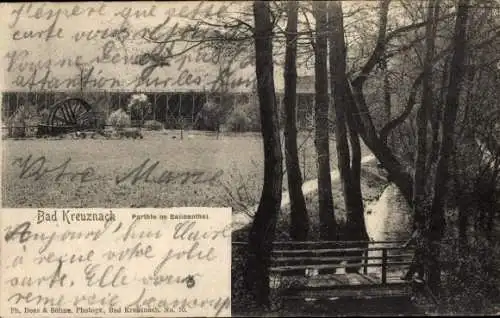 J'espère que cette
carte vous
Vous
attention sur les
Votre Marie
Bad Kreuznach Parthie im Salinenthal.
Aujourd'hui Claire
a reçue votre jolie
carte. Elle vous
remercie beaucoup
Ph. Doss & Söhne, Photogr., Bad Kreuznach, No. 70.